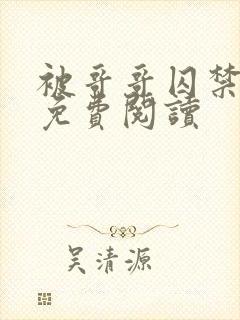 被哥哥囚禁
免費閱讀
吴清源